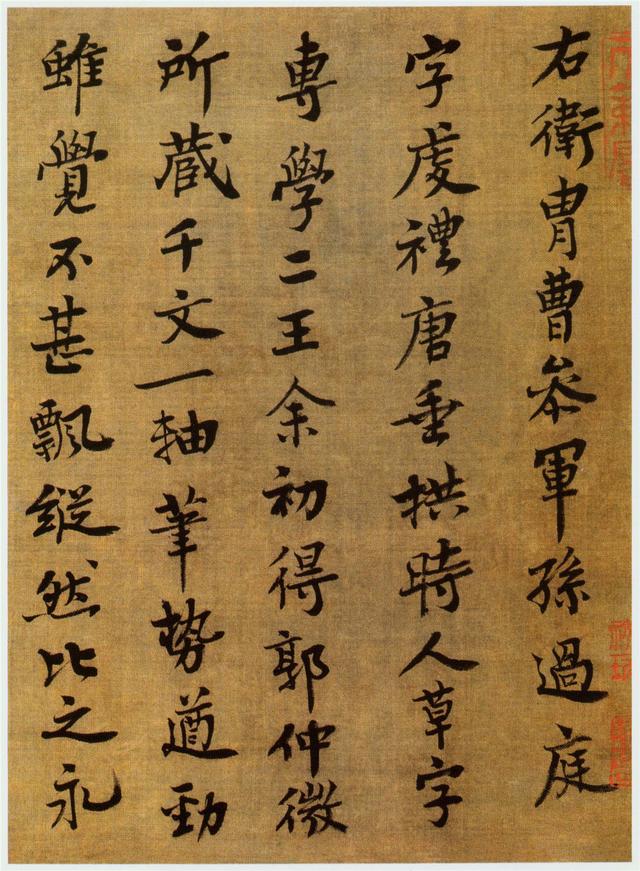 右衛冑曹叅軍孫過庭
字虔禮唐垂拱時人草字
專學二王余初得郭仲微
所蔵千文一軸筆勢遒勁
雖覺不甚飄縱然比之永